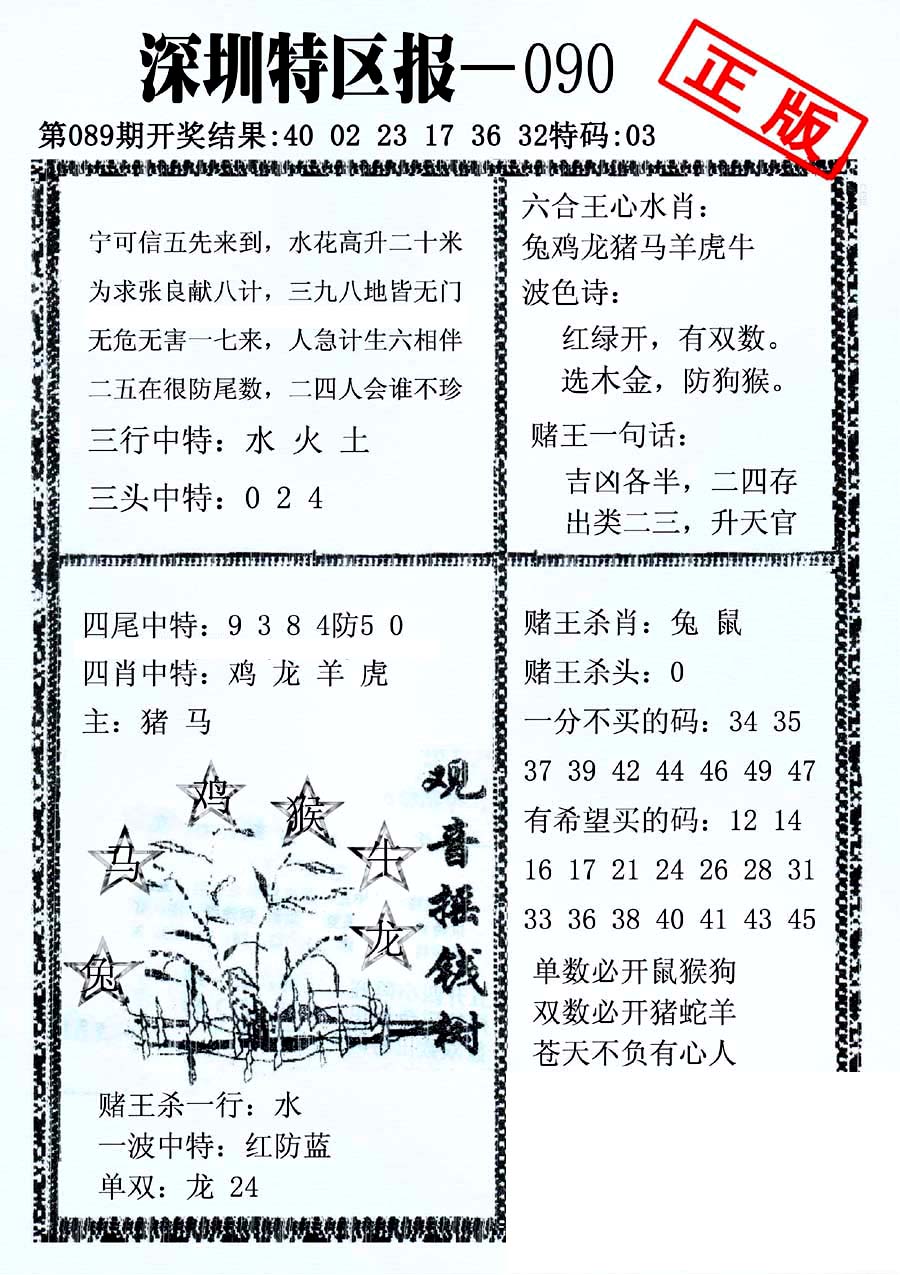 深圳特区报—090
正版
第089期开奖结果:40 02 23 17 36 32特码:03
宁可信五先来到，水花高升二十米
为求张良献八计，三九八地皆无门
无危无害一七来，人急计生六相伴
二五在很防尾数，二四人会谁不珍
三行中特：水 火 土
三头中特：0 2 4
六合王心水肖：
兔鸡龙猪马羊虎牛
波色诗：
红绿开，有双数。
选木金，防狗猴。
赌王一句话：
吉凶各半，二四存
出类二三，升天官
四尾中特：9 3 8 4防5 0
四肖中特：鸡 龙 羊 虎
主：猪 马
鸡
猴
马
牛
龙
兔
观音摇钱树
赌王杀一行：水
一波中特：红防蓝
单双：龙 24
赌王杀肖：兔 鼠
赌王杀头：0
一分不买的码：34 35
37 39 42 44 46 49 47
有希望买的码：12 14
16 17 21 24 26 28 31
33 36 38 40 41 43 45
单数必开鼠猴狗
双数必开猪蛇羊
苍天不负有心人